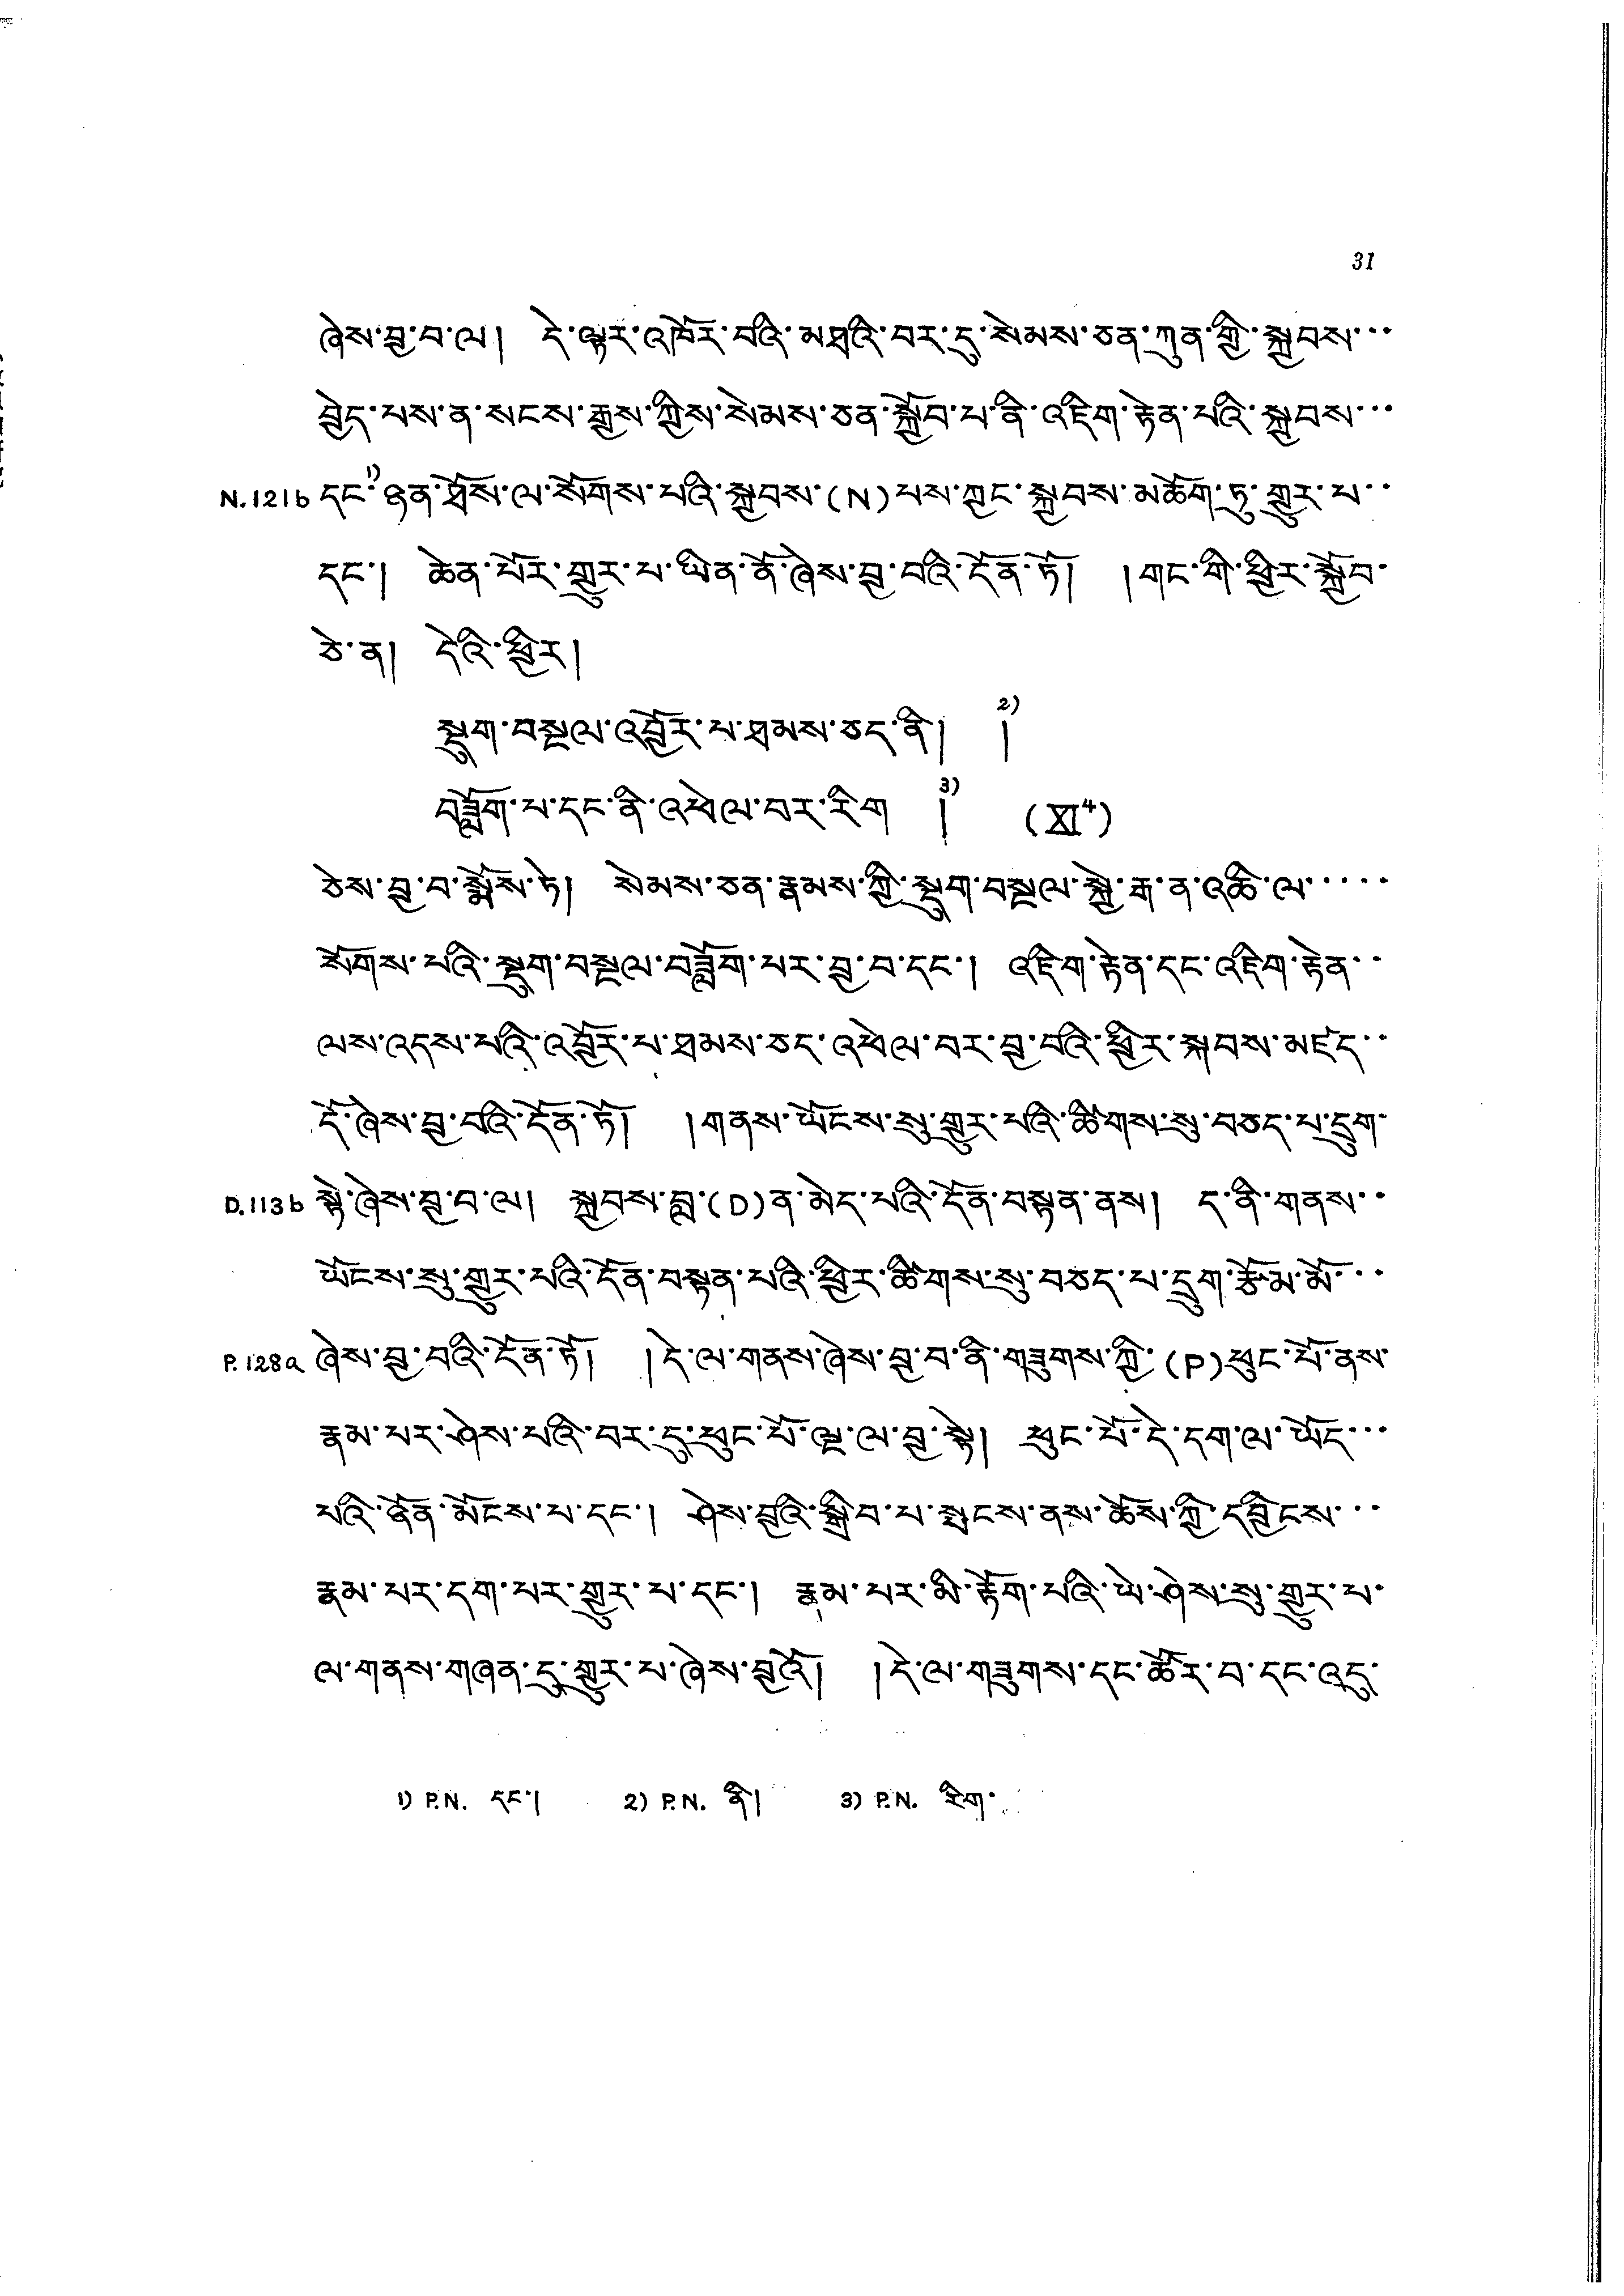 31
ཞེས་བྱ་བ་ལ། དེ་ལྟར་འཁོར་བའི་མཐའི་བར་དུ་སེམས་ཅན་ཀུན་གྱི་སྐྱབས་་་
བྱེད་པས་ན་སངས་རྒྱས་ཀྱིས་སེམས་ཅན་སྐྱོབ་པ་ནི་འཇིག་རྟེན་པའི་སྐྱབས་་་
N.121b དང་1)ཉན་ཐོས་ལ་སོགས་པའི་སྐྱབས་(N)པས་ཀྱང་སྐྱབས་མཆོག་ཏུ་གྱུར་པ་་
དང་། ཆེན་པོར་གྱུར་པ་ཡིན་ནོ་ཞེས་བྱ་བའི་དོན་ཏོ། །གང་གི་ཕྱིར་སྐྱོབ་
ཅེ་ན། དེའི་ཕྱིར།
སྡུག་བསྔལ་འབྱོར་པ་ཐམས་ཅད་ནི། །2)
བཟློག་པ་དང་ནི་འཕེལ་བར་རིག །3) (XI4)
ཅེས་བྱ་བ་སྨོས་ཏེ། སེམས་ཅན་རྣམས་ཀྱི་སྡུག་བསྔལ་སྐྱེ་རྒ་ན་འཆི་ལ་་་་་
སོགས་པའི་སྡུག་བསྔལ་བཟློག་པར་བྱ་བ་དང་། འཇིག་རྟེན་དང་འཇིག་རྟེན་་
ལས་འདས་པའི་འབྱོར་པ་ཐམས་ཅད་འཕེལ་བར་བྱ་བའི་ཕྱིར་སྐབས་མཛད་་
དོ་ཞེས་བྱ་བའི་དོན་ཏོ། །གནས་ཡོངས་སུ་གྱུར་པའི་ཚིགས་སུ་བཅད་པ་དྲུག་
D.113b སྟེ་ཞེས་བྱ་བ་ལ། སྐྱབས་བླ་(D)ན་མེད་པའི་དོན་བསྟན་ནས། ད་ནི་གནས་་
ཡོངས་སུ་གྱུར་པའི་དོན་བསྟན་པའི་ཕྱིར་ཚིགས་སུ་བཅད་པ་དྲུག་རྩོམ་མོ་་་
P.128a ཞེས་བྱ་བའི་དོན་ཏོ། །དེ་ལ་གནས་ཞེས་བྱ་བ་ནི་གཟུགས་ཀྱི་(P)ཕུང་པོ་ནས་
རྣམ་པར་ཤེས་པའི་བར་དུ་ཕུང་པོ་ལྔ་ལ་བྱ་སྟེ། ཕུང་པོ་དེ་དག་ལ་ཡོད་་་
པའི་ཉོན་མོངས་པ་དང་། ཤེས་བྱའི་སྒྲིབ་པ་སྤངས་ནས་ཆོས་ཀྱི་དབྱིངས་་་
རྣམ་པར་དག་པར་གྱུར་པ་དང་། རྣམ་པར་མི་རྟོག་པའི་ཡེ་ཤེས་སུ་གྱུར་པ་
ལ་གནས་གཞན་དུ་གྱུར་པ་ཞེས་བྱའོ། །དེ་ལ་གཟུགས་དང་ཚོར་བ་དང་འདུ་
1) P.N. དང་། 2) P.N. ནི། 3) P.N. རིག་